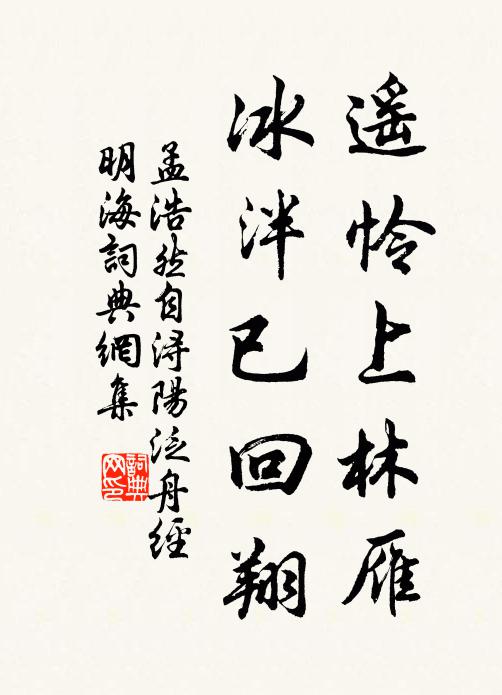 遥怜上林雁
冰泮已回翔
孟浩然自潯陽泛舟經
明海詞典網集
詞典网印